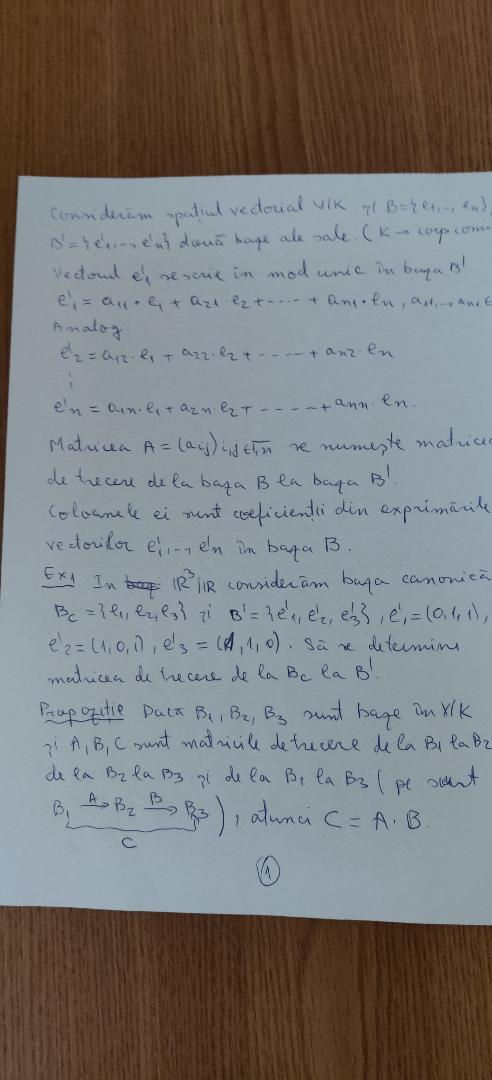 Considerăm spațiul vectorial V/K și B={e1,..., en},
B'={e'1,..., e'n} două baze ale sale. (K → corp com
Vectorul e'1 se scrie în mod unic în baza B'
e'1 = a11·e1 + a21·e2 +----- + an1·en, a11,..., an1 ∈
Analog.
e'2 = a12·e1 + a22·e2 +-----+ an2·en
⋮
e'n = a1n·e1 + a2n·e2 +-----+ ann·en.
Matricea A=(aij)i,j∈1,n se numește matricea
de trecere de la baza B la baza B'.
Coloanele ei sunt coeficienții din exprimările
vectorilor e'1,..., e'n în baza B.
Ex1 In baz ℝ³/ℝ considerăm baza canonică
Bc={e1, e2, e3} și B'={e'1, e'2, e'3}, e'1=(0,1,1),
e'2=(1,0,1), e'3=(1,1,0). Să se determine
matricea de trecere de la Bc la B'.
Propoziție Dacă B1, B2, B3 sunt baze în V/K
și A, B, C sunt matricile de trecere de la B1 la B2
de la B2 la B3 și de la B1 la B3 (pe scurt
B1 A→ B2 B→ B3), atunci C = A·B.
C
1